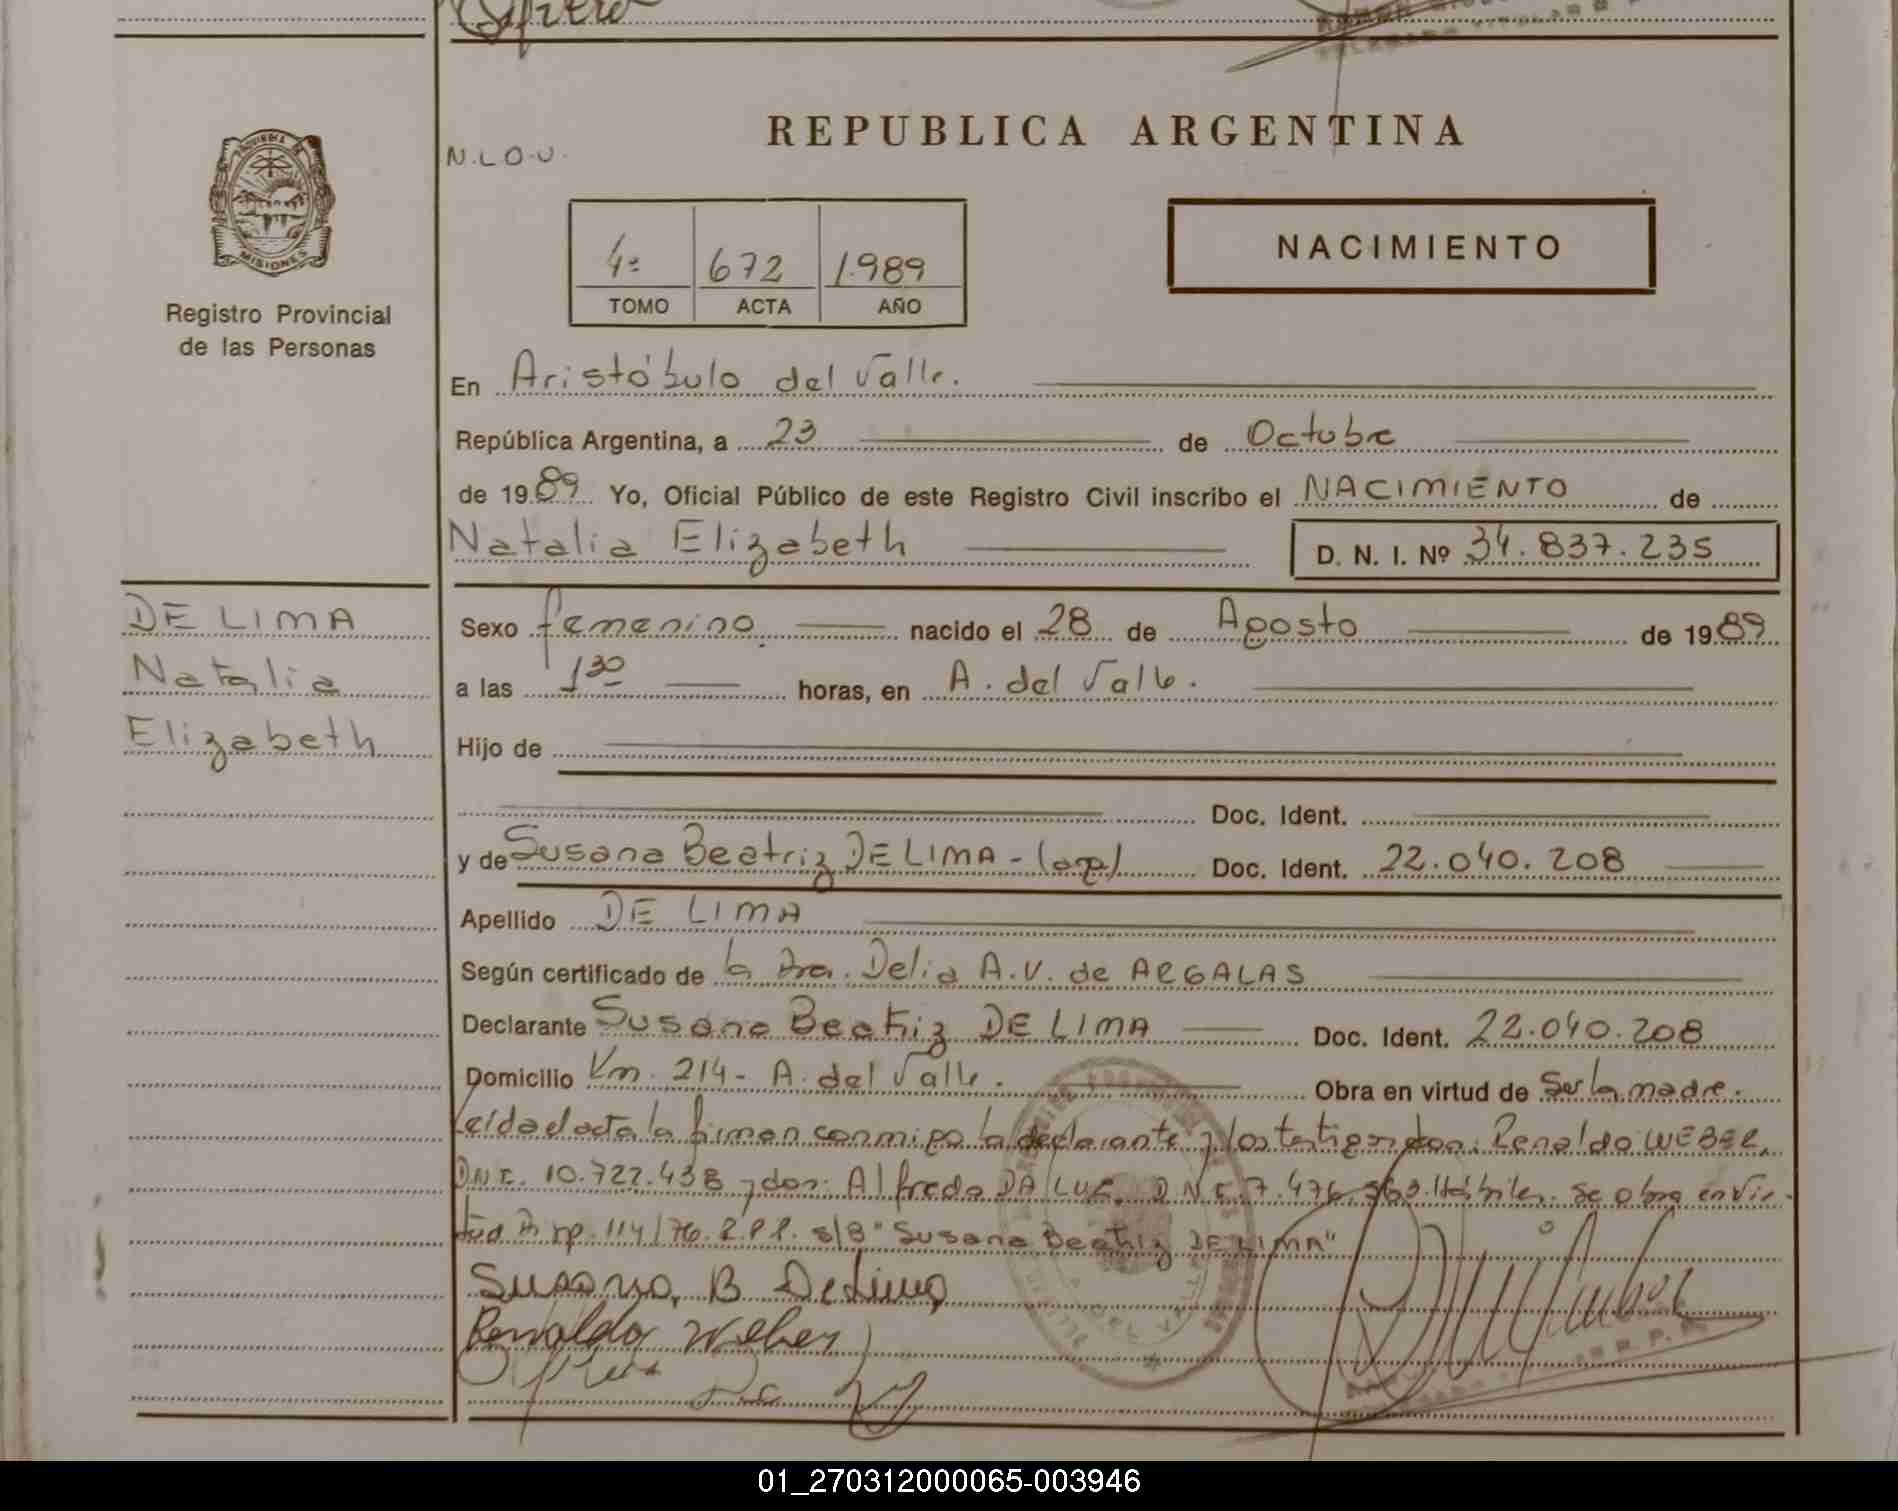 N.L.O.U.
REPUBLICA ARGENTINA
MISIONES
Registro Provincial
de las Personas
4º 672 1.989
TOMO ACTA AÑO
NACIMIENTO
En Aristóbulo del Valle.
República Argentina, a 23 de Octubre
de 1989 Yo, Oficial Público de este Registro Civil inscribo el NACIMIENTO de
Natalia Elizabeth D. N. I. Nº 34.837.235
DE LIMA
Natalia
Elizabeth
Sexo femenino. nacido el 28 de Agosto de 1989
a las 1 30 horas, en A. del Valle.
Hijo de
Doc. Ident.
y de Susana Beatriz DE LIMA - (arg) Doc. Ident. 22.040.208
Apellido DE LIMA
Según certificado de la Dra. Delia A.V. de ARGALAS
Declarante Susana Beatriz DE LIMA Doc. Ident. 22.040.208
Domicilio Km. 214 - A. del Valle. Obra en virtud de Ser la madre.
Leída el acta la firman conmigo la declarante y los testigos don: Renaldo WEBER,
DNI. 10.722.438 y don: Alfredo DA LUZ, D.N.I. 7.476.563. Hábiles. Se obra en vir-
tud 114/76. R.P.P. s/B "Susana Beatriz DE LIMA"
Susana. B De Lima
Renaldo Weber
01_270312000065-003946